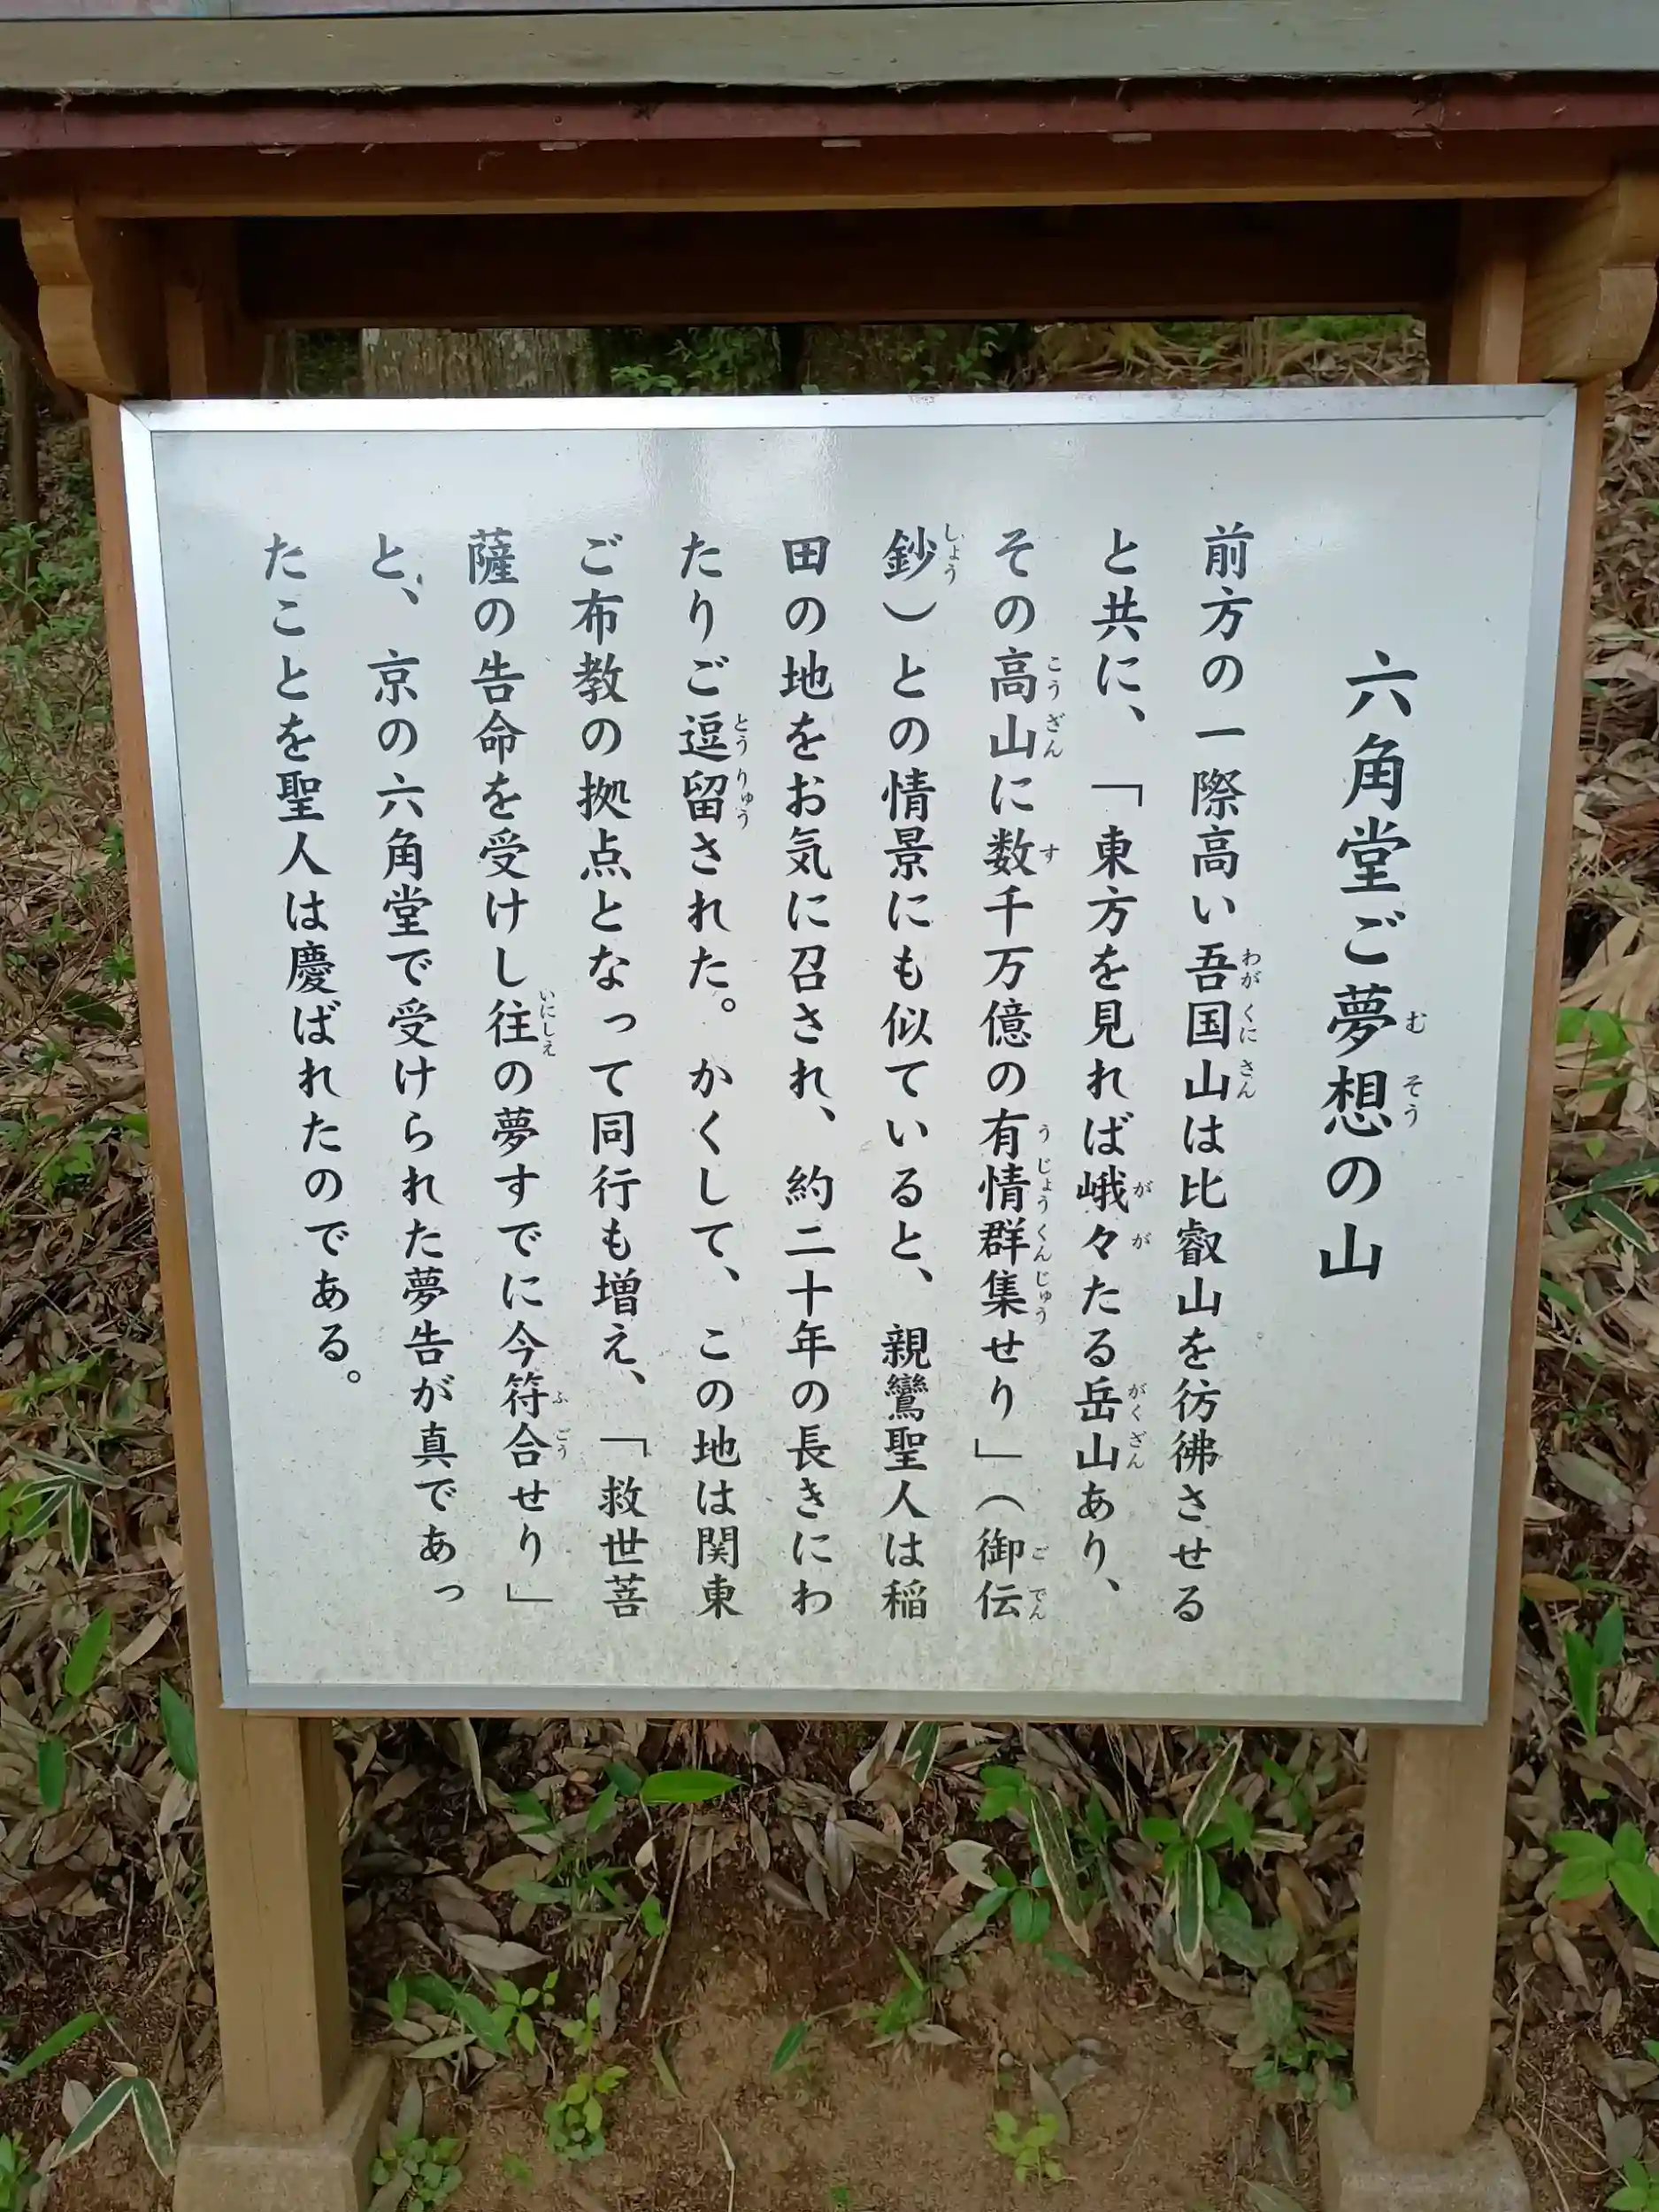 六角堂ご夢想の山
前方の一際高い吾国山は比叡山を彷彿させる
と共に、「東方を見れば峨々たる岳山あり、
その高山に数千万億の有情群集せり」（御伝
鈔）との情景にも似ていると、親鸞聖人は稲
田の地をお気に召され、約二十年の長きにわ
たりご逗留された。かくして、この地は関東
ご布教の拠点となって同行も増え、「救世菩
薩の告命を受けし往の夢すでに今符合せり」
と、京の六角堂で受けられた夢告が真であっ
たことを聖人は慶ばれたのである。